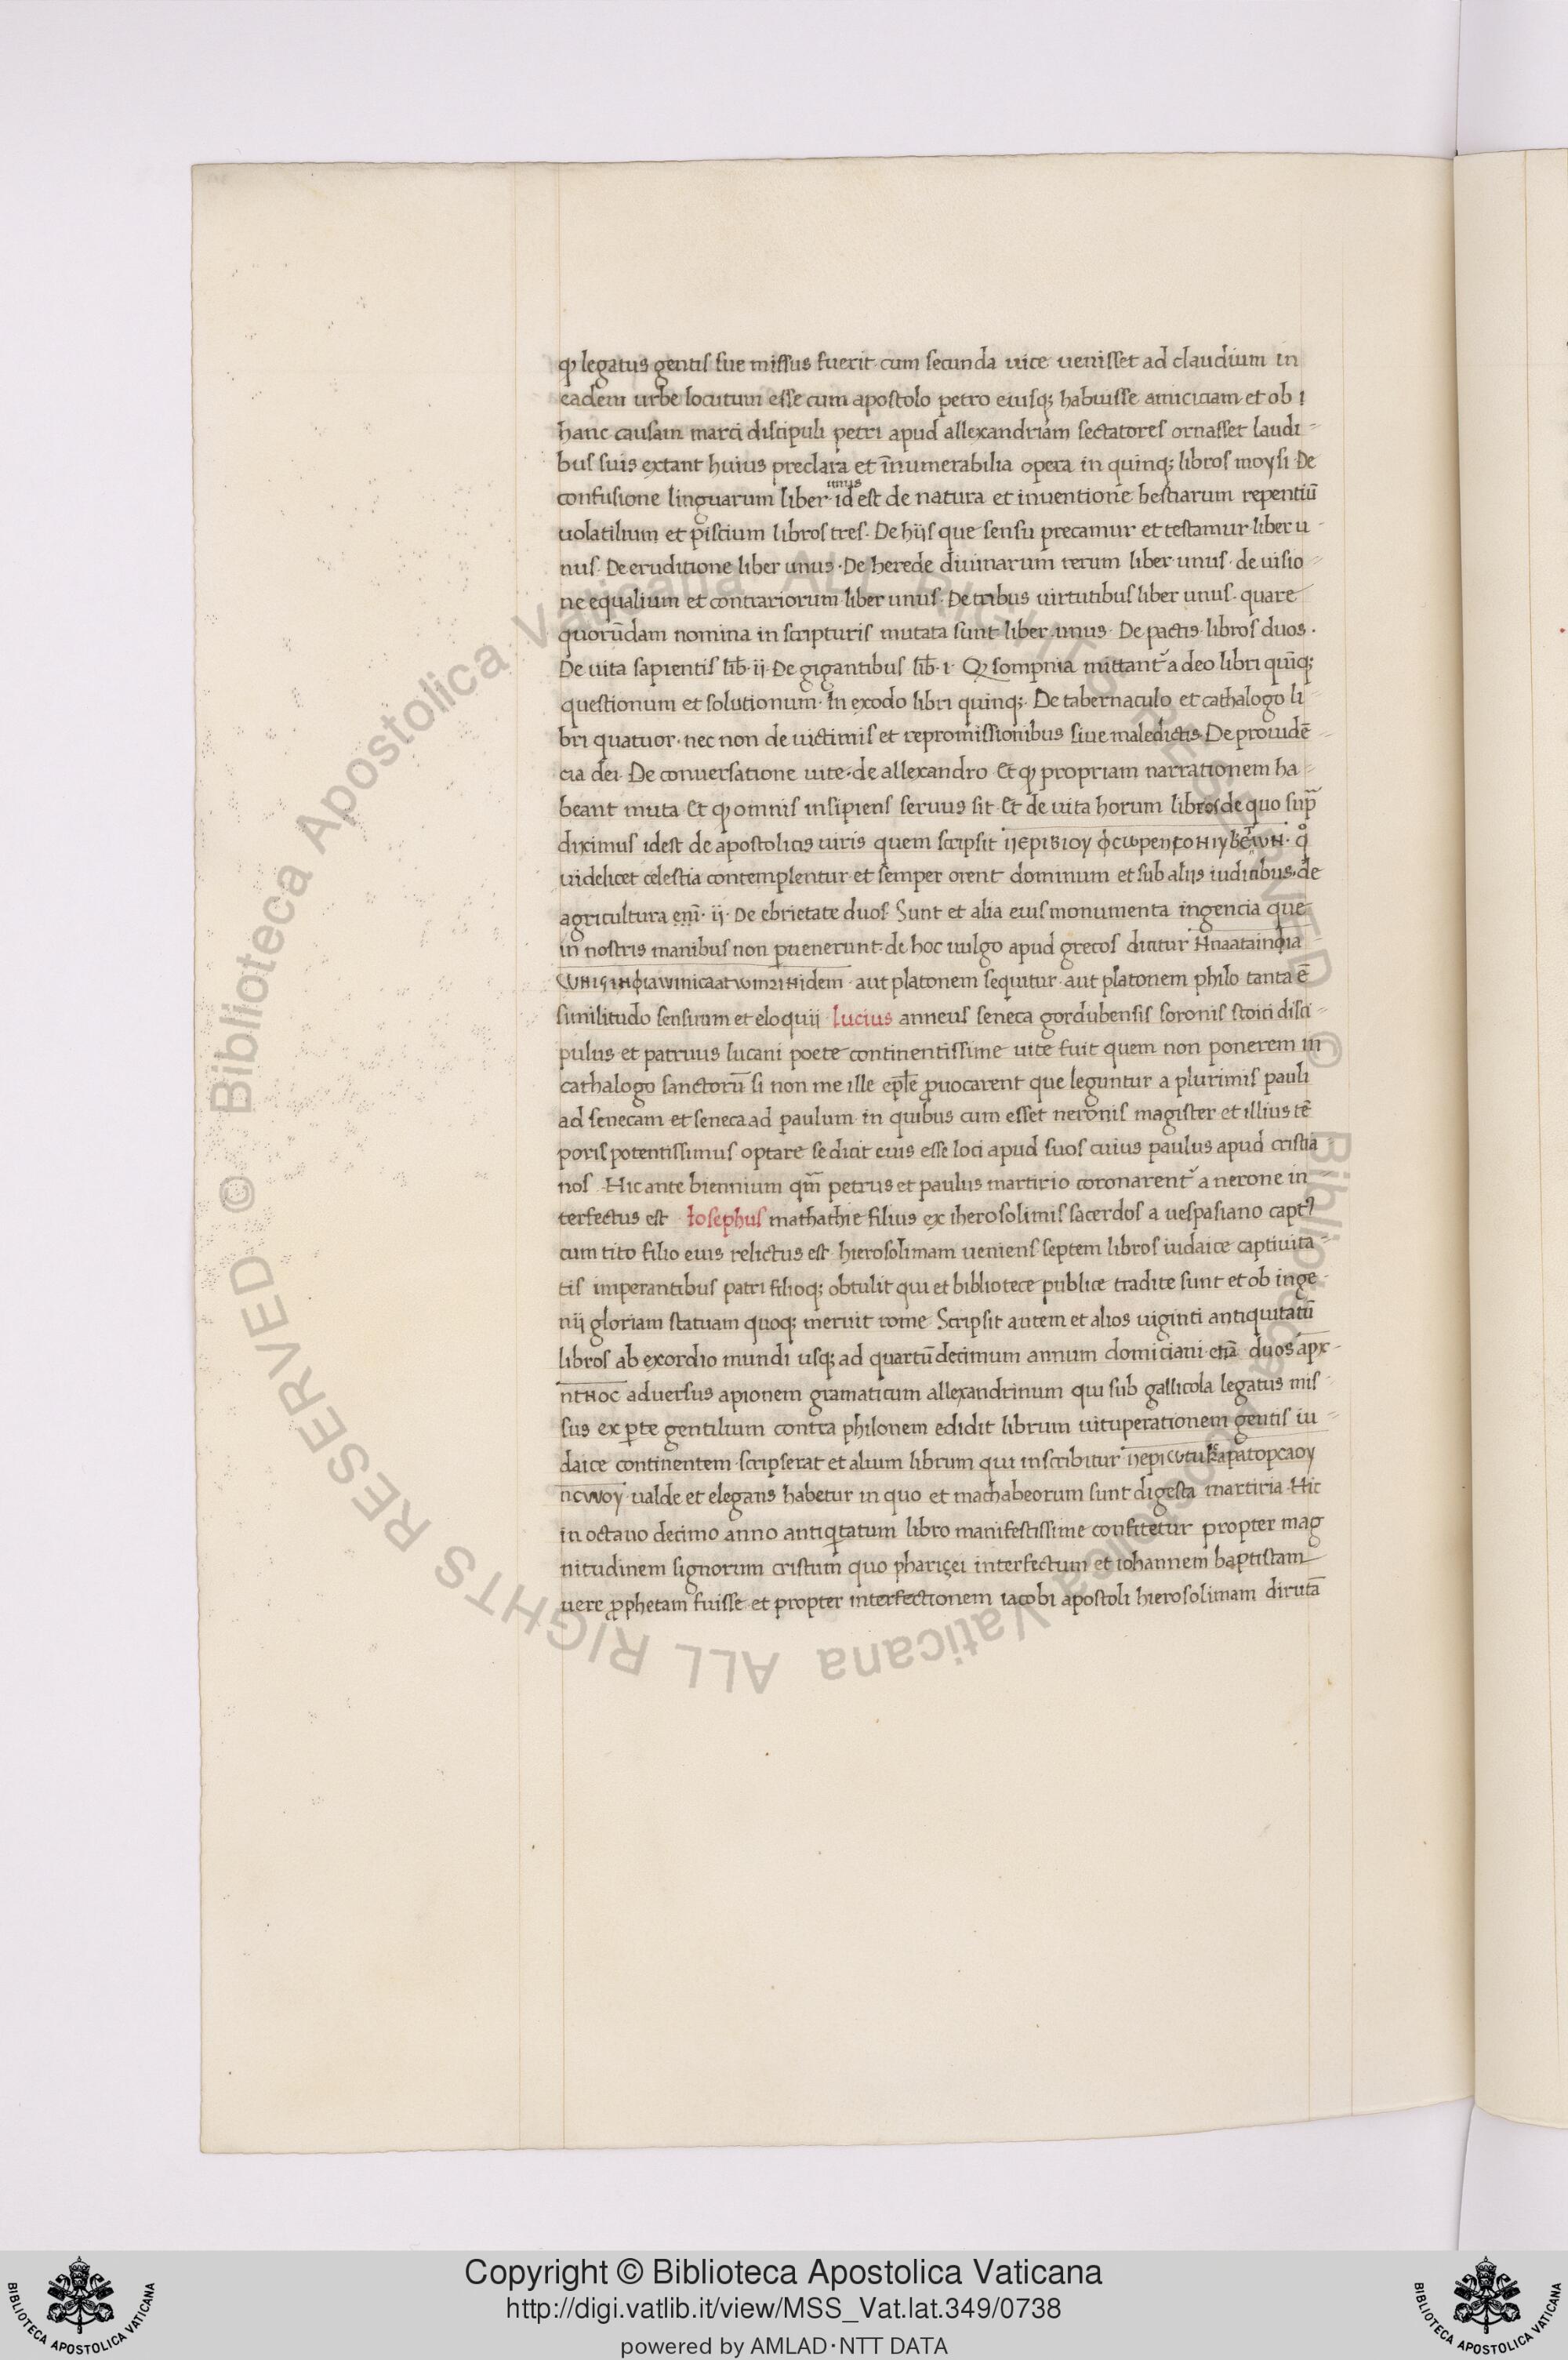 qͥ legatus gentis sue missus fuerit cum secunda uice uenisset ad claudium in
eadem urbe locutum esse cum apostolo petro eiusq; habuisse amiciciam et ob
hanc causam marci discipuli petri apud allexandriam sectatores ornasset laudi-
bus suis extant huius preclara et īnumerabilia opera in quinq; libros moysi De
confusione linguarum liber unus id est de natura et inuentione bestiarum repentiū
uolatilium et piscium libros tres. De hijs que sensu precamur et testamur liber u-
nus. De eruditione liber unus. De herede diuinarum rerum liber unus. de uisio-
ne equalium et contrariorum liber unus. De tribus uirtutibus liber unus. quare
quorūdam nomina in scripturis mutata sunt liber unus. De pactis libros duos.
De uita sapientis lib̄. ii. De gigantibus lib̄. i. Qꝫ sompnia mittant᷑ a deo libri quīq;
questionum et solutionum. In exodo libri quinq;. De tabernaculo et cathalogo li-
bri quatuor. nec non de uictimis et repromissionibus siue maledictis De prouidē-
cia dei. De conuersatione uite. de allexandro Et qͥ propriam narrationem ha-
beant muta Et qͥ omnis insipiens seruus sit Et de uita horum libros de quo sup̄
diximus idest de apostolicis uiris quem scripsit
uidelicet celestia contemplentur et semper orent dominum et sub alijs iudicibus. de
agricultura enī. ij. De ebrietate duos. Sunt et alia eius monumenta ingencia que
in nostris manibus non ꝑuenerunt. de hoc uulgo apud grecos dicitur
aut platonem sequitur. aut platonem philo tanta ē
similitudo sensuum et eloquij Lucius anneus seneca gordubensis soronis stoici disci-
pulus et patruus lucani poete continentissime uite fuit quem non ponerem in
cathalogo sanctorū si non me ille ep̄le ꝓuocarent que leguntur a plurimis pauli
ad senecam et seneca ad paulum in quibus cum esset neronis magister et illius tē
poris potentissimus optare se dicit eius esse loci apud suos cuius paulus apud cristia
nos Hic ante biennium qm̄ petrus et paulus martirio coronarent᷑ a nerone in
terfectus est Iosephus mathathie filius ex iherosolimis sacerdos a uespasiano captꝰ
cum tito filio eius relictus est. hierosolimam ueniens septem libros iudaice captiuita-
tis imperantibus patri filioq; obtulit qui et bibliotece publice tradite sunt et ob inge-
nij gloriam statuam quoq; meruit rome Scripsit autem et alios uiginti antiquitatū
libros ab exordio mundi usq; ad quartūdecimum annum domiciani etiā duos apx-
ntнoc aduersus apionem gramaticum allexandrinum qui sub gallicola legatus mis-
sus ex ꝑte gentilium contra philonem edidit librum uituperationem gentis iu-
daice continentem scripserat et alium librum qui inscribitur
ualde et elegans habetur in quo et machabeorum sunt digesta martiria Hic
in octauo decimo anno antiqͥtatum libro manifestissime confitetur propter mag
nitudinem signorum cristum quo pharicei interfectum et iohannem baptistam
uere ꝓphetam fuisse et propter interfectionem iacobi apostoli hierosolimam dirutā
Copyright © Biblioteca Apostolica Vaticana
http://digi.vatlib.it/view/MSS_Vat.lat.349/0738
powered by AMLAD·NTT DATA
BIBLIOTECA APOSTOLICA VATICANA
BIBLIOTECA APOSTOLICA VATICANA
© Biblioteca Apostolica Vaticana ALL RIGHTS RESERVED © Biblioteca Apostolica Vaticana ALL RIGHTS RESERVED